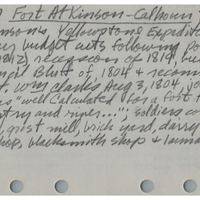 Fort Atkinson - Calhoun
Yellowstone Expediti
budget cuts following
recession of 1819,
ncil Bluff of 1804 & recom
Clark's Aug 3, 1804, jo
as "well Calculated for a fort t
try and river..."; soldiers
grist mill, brick yard,
hop, blacksmith shop &